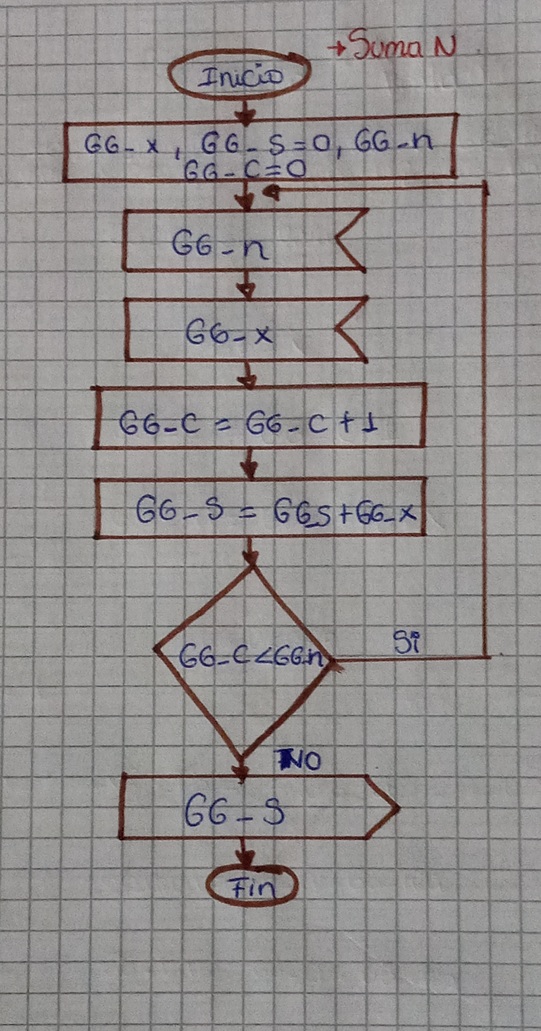 → Suma N
Inicio
GG-x, GG-S=0, GG-n
GG-C=0
GG-n
GG-x
GG-C = GG-C+1
GG-S = GGS+GG-x
GG-C<GGn
Si
NO
GG-S
Fin